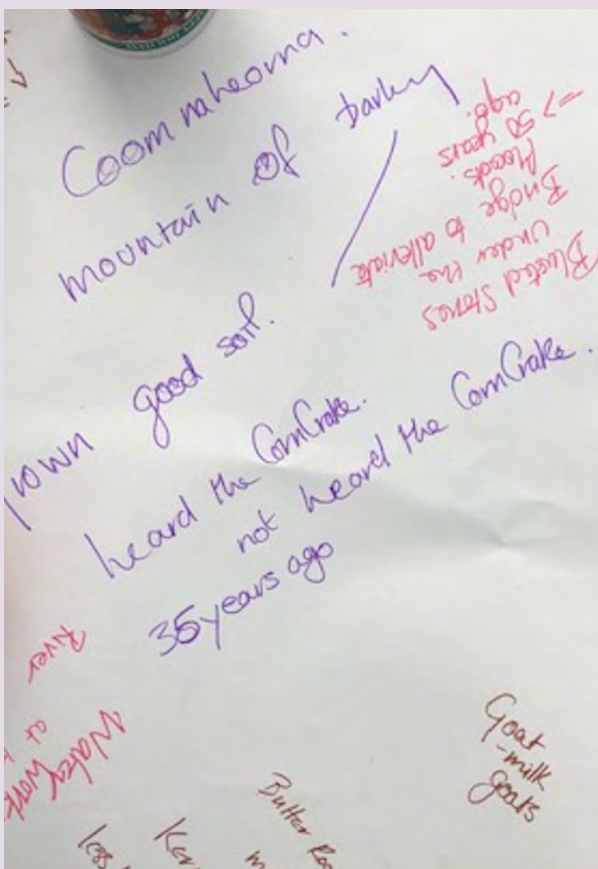 Coomnaheorna.
mountain of barley
good soil.
heard the CornCrake.
not heard the CornCrake.
35 years ago
Blasted Stones
under the
Bridge to alleviate
floods.
=> 50 years
ago.
River
Goat
-milk
goats
Butter